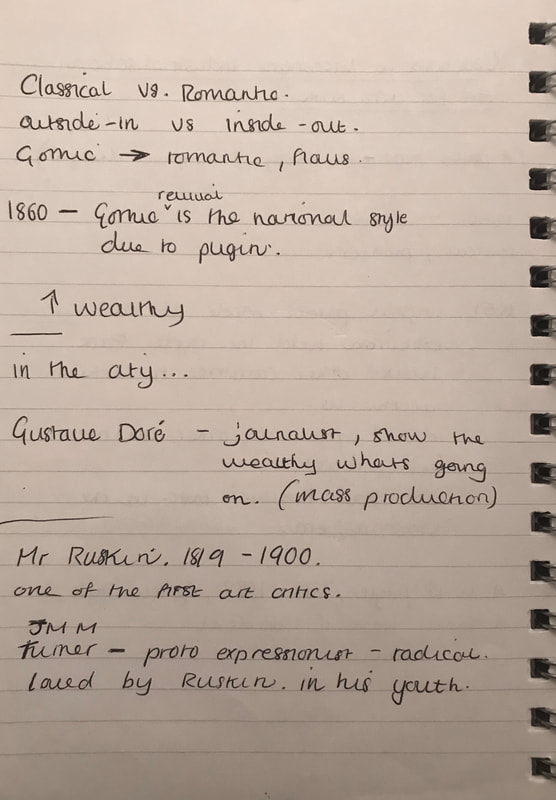 Classical vs. Romantic.
outside-in vs inside-out.
Gothic → romantic, Haus.
revival
1860 – Gothic ˅ is the national style
due to pugin.
↑ wealthy
in the city...
Gustave Doré – journalist, show the
wealthy whats going
on. (mass production)
Mr Ruskin. 1819 - 1900.
one of the FIRST art critics.
JMM
Turner – proto expressionist – radical.
loved by Ruskin. in his youth.